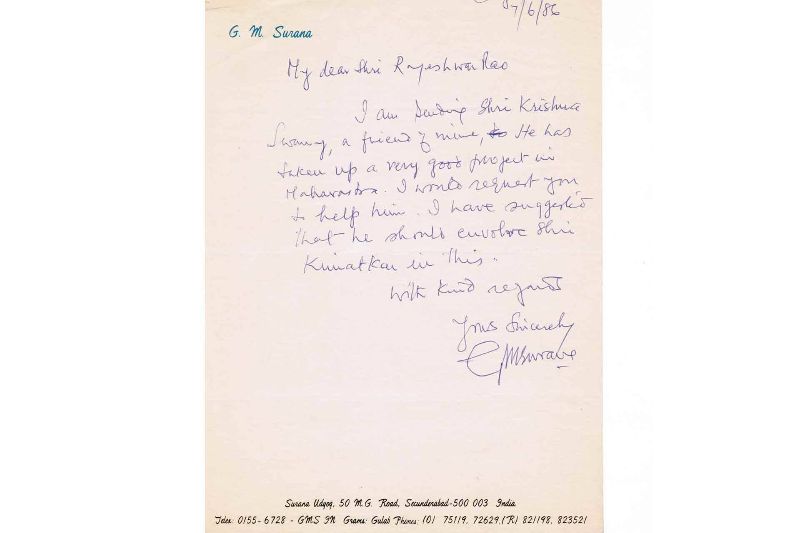 7/6/86
G. M. Surana
My dear Shri Rajeshwar Rao
I am sending Shri Krishna
Swamy, a friend of mine, to He has
taken up a very good project in
Maharastra. I would request you
to help him. I have suggested
that he should envolve Shri
Kinatkar in this.
With kind regards
Yours Sincerely
GMSurana
Surana Udyog, 50 M.G. Road, Secunderabad-500 003 India
Telex: 0155-6728 - GMS IN Grams: Gulab Phones: (O) 75119, 72629, (R) 821198, 823521